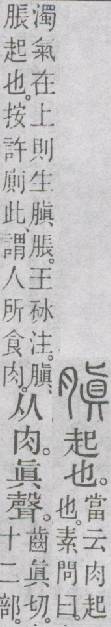 䐜
起也。
當云肉起
也。素問曰。
濁氣在上則生䐜脹。王砅注。䐜、
脹起也。按許廁此、謂人所食肉。
从肉。眞聲。
齒眞切。
十二部。